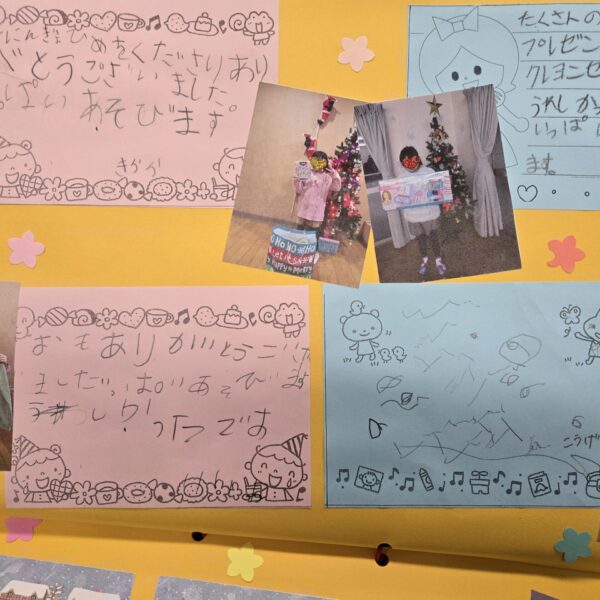 にんぎょひめちくださりあり
がとうございました
っぱい あそびます。
きかか
たくさんの
プレゼン
クレヨンセ
うれしかっ
いっぱい
ます。
HO HO HO
Let it S
Happy Merry
おもありがとうござい
ましたいっぱいあそびます
うれしかったです
こうげ